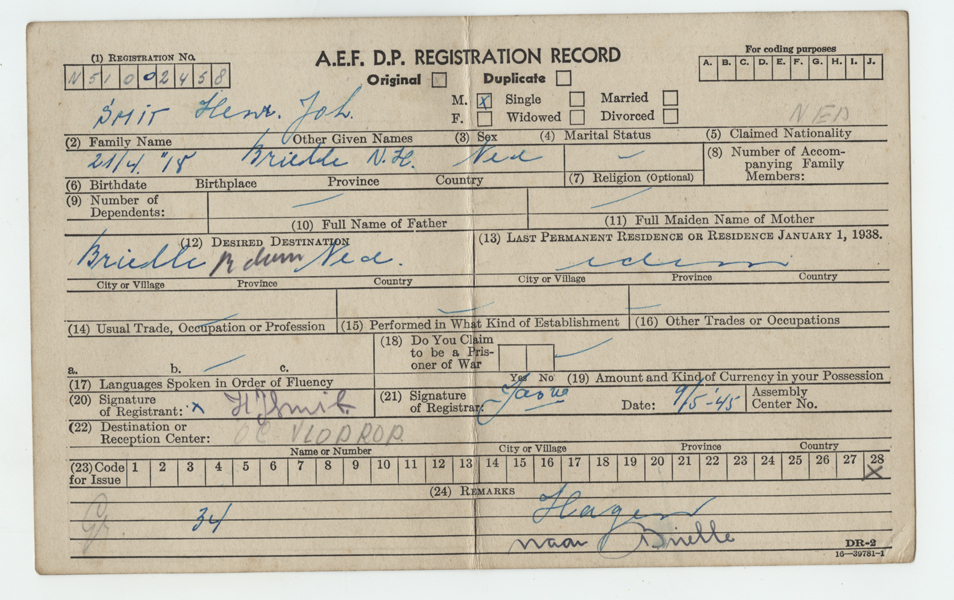 (1) Registration No.
N 5 1 0 0 2 4 5 8
A.E.F. D.P. REGISTRATION RECORD
Original Duplicate
For coding purposes
A. B. C. D. E. F. G. H. I. J.
M. X Single Married
F. Widowed Divorced
SMIT Henr. Joh.
NED
(2) Family Name Other Given Names (3) Sex (4) Marital Status (5) Claimed Nationality
21/4 "18 Brielle N.H. Ned —
(6) Birthdate Birthplace Province Country (7) Religion (Optional) (8) Number of Accompanying Family Members:
(9) Number of Dependents: — —
(10) Full Name of Father (11) Full Maiden Name of Mother
(12) Desired Destination (13) Last Permanent Residence or Residence January 1, 1938.
Brielle Ned. idem
City or Village Province Country City or Village Province Country
(14) Usual Trade, Occupation or Profession (15) Performed in What Kind of Establishment (16) Other Trades or Occupations
(18) Do You Claim to be a Prisoner of War —
a. b. — c. Yes No
(17) Languages Spoken in Order of Fluency (19) Amount and Kind of Currency in your Possession
(20) Signature of Registrant: x HJSmit. (21) Signature of Registrar: Date: 9/5-'45 Assembly Center No.
(22) Destination or Reception Center: OC VLODROP
Name or Number City or Village Province Country
(23) Code for Issue 1 2 3 4 5 6 7 8 9 10 11 12 13 14 15 16 17 18 19 20 21 22 23 24 25 26 27 28
X
(24) Remarks
34 Hagen
naar Brielle
DR-2
16—39781-1